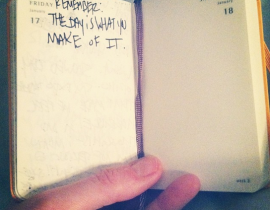 FRIDAY
January
17
REMEMBER:
THE DAY IS WHAT YOU
MAKE OF IT.
January
18